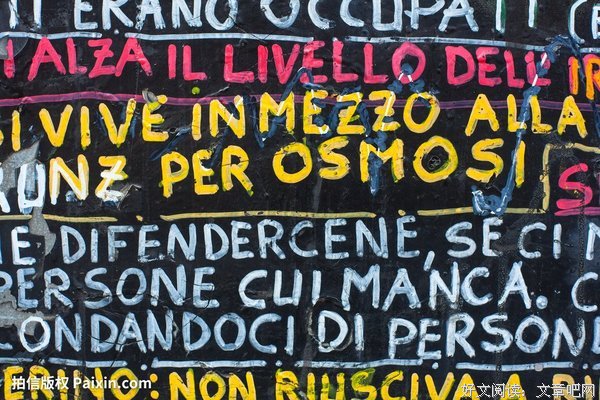 TI ERANO OCCUPATI
ALZA IL LIVELLO DELL'
SI VIVE IN MEZZO ALLA
PER OSMOSI
DIFENDERCENE, SE CI
PERSONE CUI MANCA. C
CONDANDOCI DI PERSON
ERINO: NON RIUSCIVA
拍信版权 Paixin.com
好文阅读，文章吧网